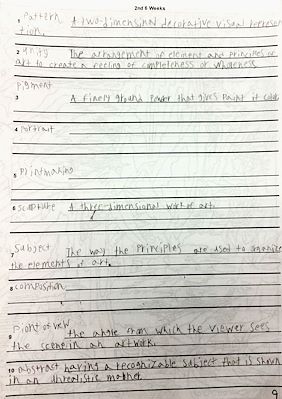 2nd 6 Weeks
1 Pattern A two-dimensional decorative visual represen
tion.
2 unity The arrangement of element and principles of
art to create a feeling of completeness or wholeness
3 Pigment
A finely ground powder that gives paint it color
4 Portrait
5 Printmaking
6 sculpture A three-dimensional work of art.
7 Subject The way the principles are used to organize
the elements of art.
8 composition
9 Piont of veiw the angle from which the viewer sees
the scene in an artwork.
10 abstract having a recognizable subject that is shown
in an unrealistic manner.
9